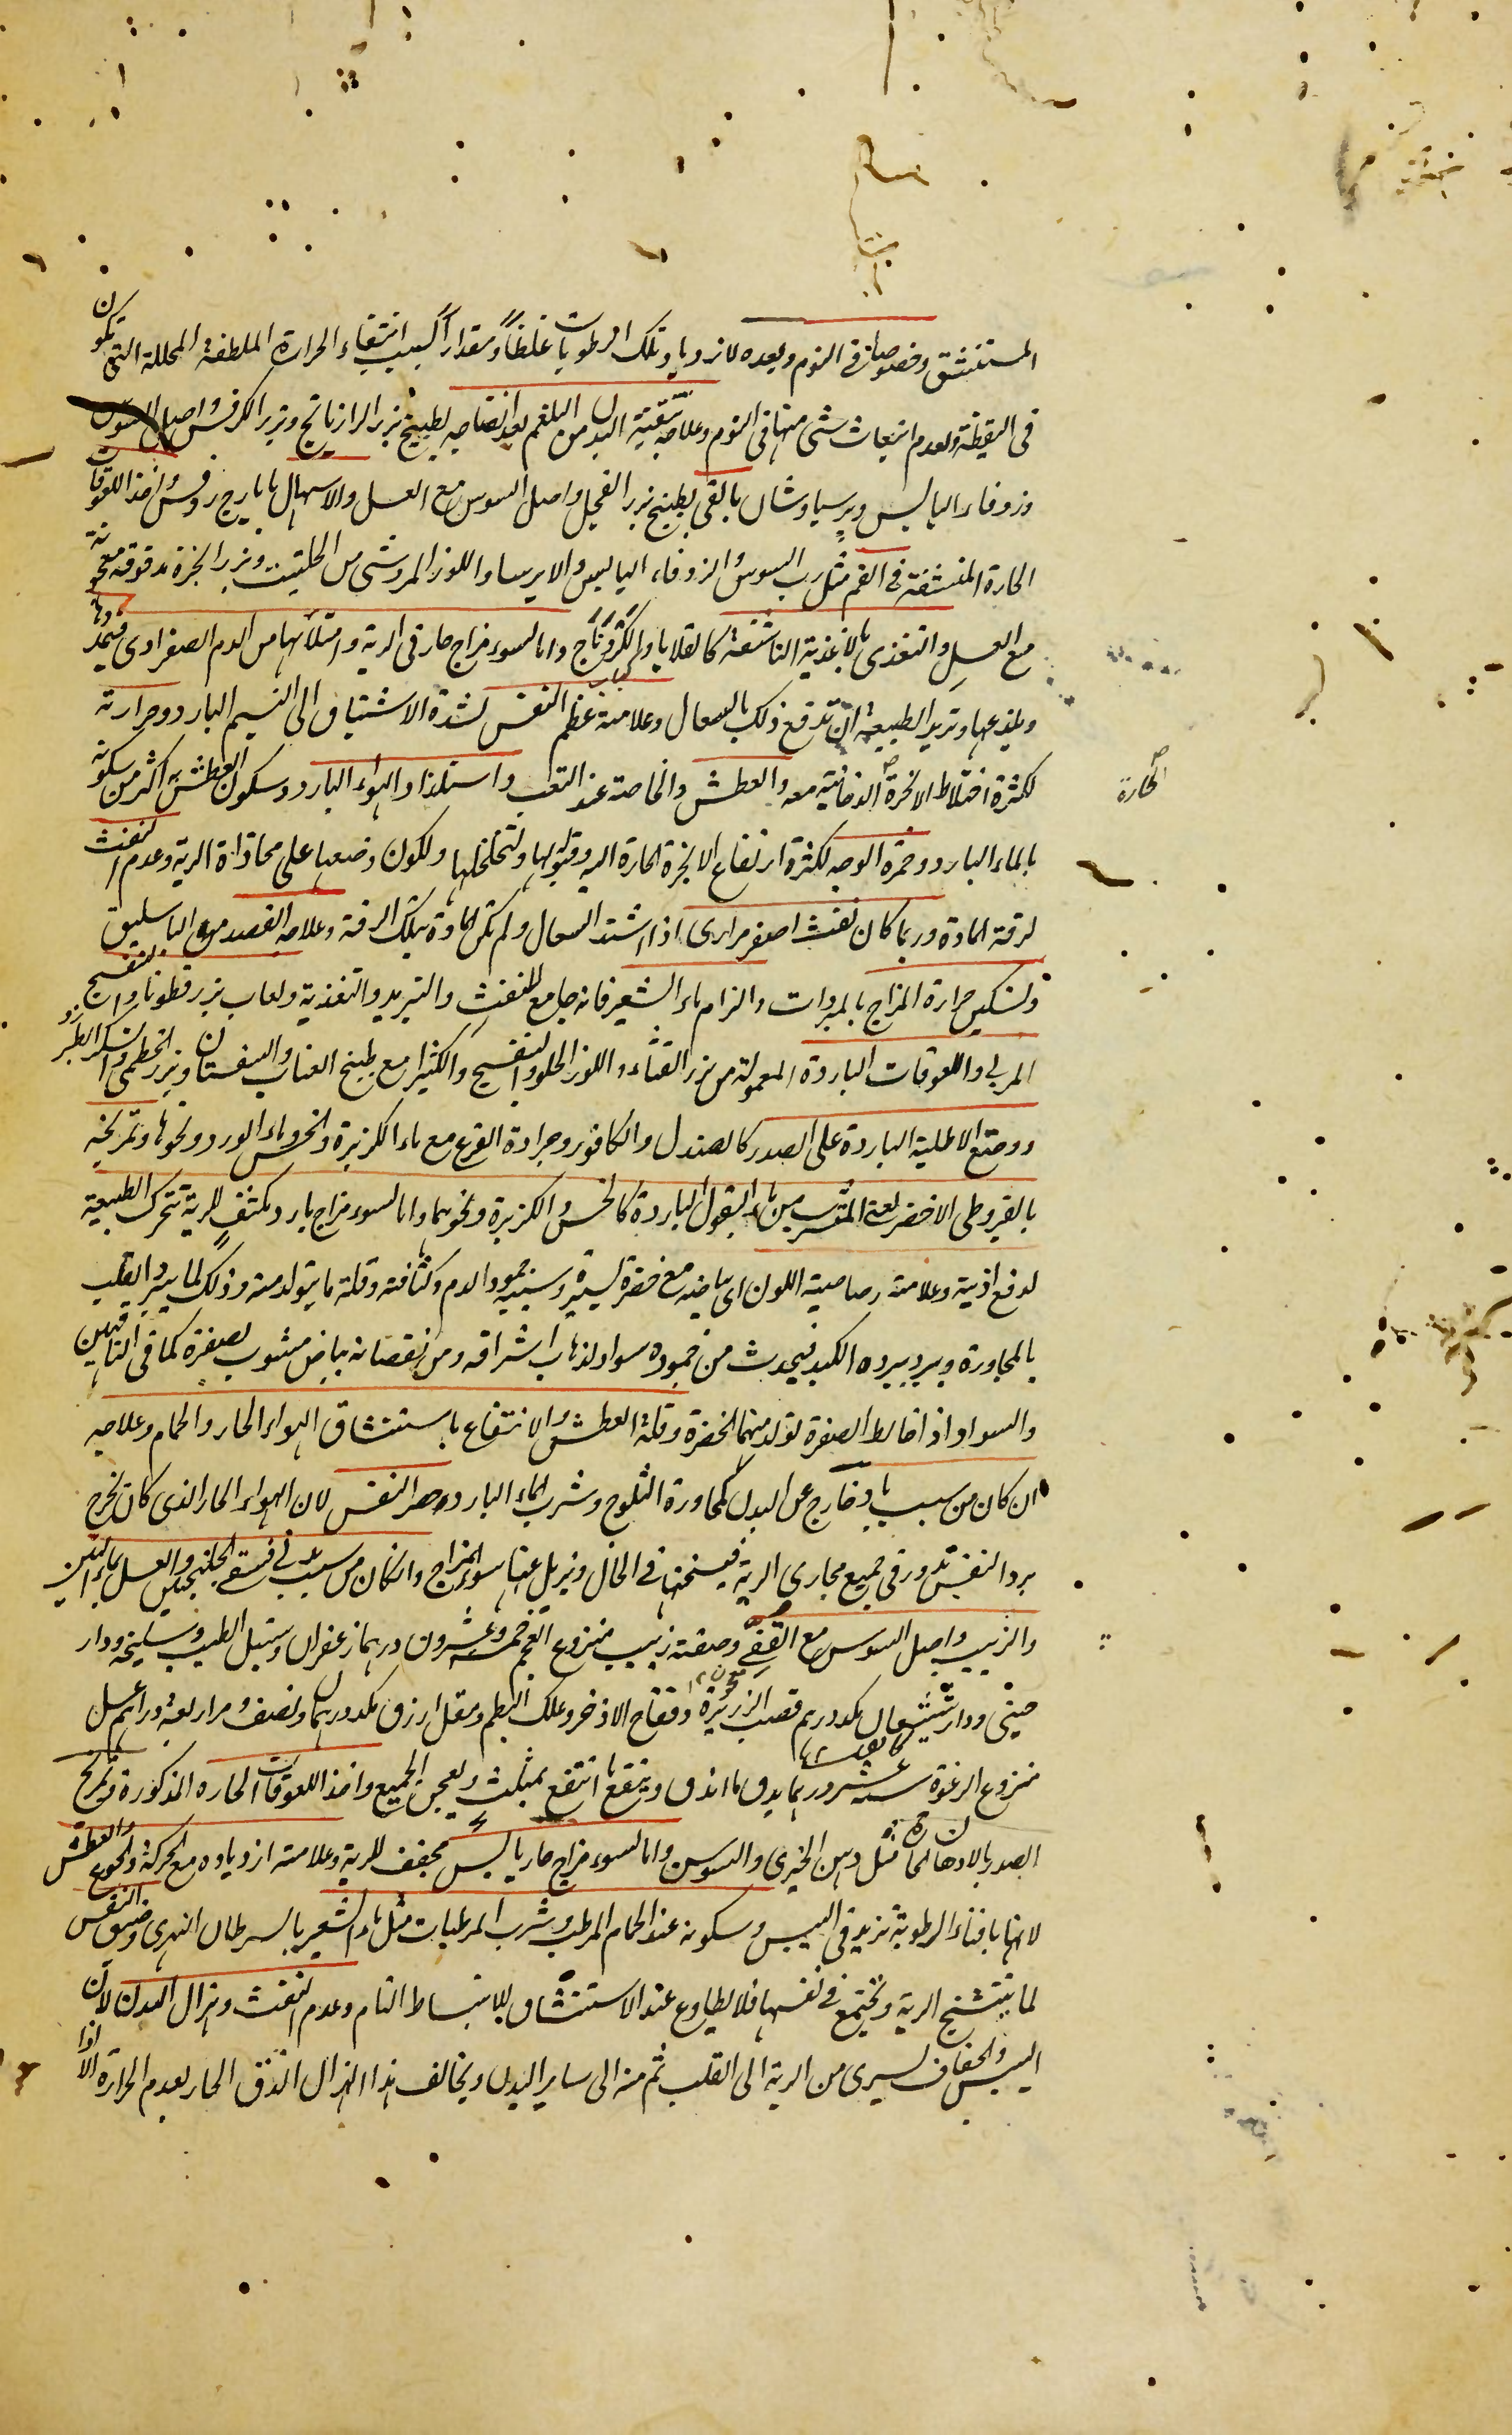 المستنشق وخصوصا فى النوم وبعده لازدياد تلك الرطوبات غلظاً ومقداراً بسبب انتفاء الحرارة الملطفة المحللة التى تكون
فى اليقظة ولعدم انبعاث شئ منها فى النوم وعلاجه تنقية البدن من البلغم بعد انضاجه بطبيخ بزر الرازيانج وبزر الكرفس واصل السوس
وزوفاء اليابس وبرسياوشان بالقى بطبيخ بزر الفجيل واصل السوس مع العسل والاسهال بايارج روفس واخذ اللعوقات
الحارة المنشفة فى الفم مثل رب السوس والزوفاء اليابس والايرسا واللوز المر وشى من الحلتيت وبزر انجرة مدقوقة معجونة
مع العسل والتغذى بالاغذية الناشفة كالقلايا والكردناج واما لسوء مزاج حار فى الرية وامتلائها من الدم الصفراوى فيمددها
ويلذعها وتريد الطبيعة ان تدفع ذلك بالسعال وعلامته عظم النفس لشدة الاشتياق الى النسيم البارد وحرارته
لكثرة اختلاط الابخرة الدخانية معه والعطش وخاصة عند التعب واستلذاذ الهواء البارد وسكون العطش به اكثر من سكونه
الحارة
بالماء البارد وحمرة الوجه لكثرة ارتفاع الابخرة الحارة اليه وقبوله لها ولتخلخلها ولكون وضعها على محاذاة الرية وعدم النفث
لرقة المادة وربما كان نفث اصفر مرارى اذا اشتد السعال ولم تكن المادة بتلك الرقة وعلاجه الفصد من الباسليق
وتسكين حرارة المزاج بالمبردات والزام ماء الشعير فانه جامع للنفث والتبريد والتغذية ولعاب بزرقطونا والبنفسج
المربى واللعوقات الباردة المعمولة من بزر القثاء واللوز الحلو والبنفسج والكثيرا مع طبيخ العناب والسفستان وبزر الخطمى والسكر الطبرزد
ووضع الاطلية الباردة على الصدر كالصندل والكافور وجرادة القرع مع ماء الكزبرة والخس وماء الورد ونحوها وتمريخه
بالقيروطى الاخضر لعة المتشرب من ماء البقول الباردة كالخس والكزبرة ونحوهما واما لسوء مزاج بارد مكثف للرية تتحرك الطبيعة
لدفع اذيته وعلامته رصاصية اللون اى بياضه مع خضرة يسيرة وسببه جمود الدم وكثافته وقلة ما يتولد منه وذلك لما يبرد القلب
بالمجاورة ويبرد ببرده الكبد فيحدث من جموده سواد لذهاب اشراقه ومن نقصانه بياض مشوب بصفرة كما فى الناقهين
والسواد اذا خالط الصفرة تولد منهما الخضرة وقلة العطش والانتفاع باستنشاق الهواء الحار والحمام وعلاجه
ان كان من سبب باد خارج عن البدن كمجاورة الثلوج وشرب الماء البارد حصر النفس لان الهواء الحار الذى كان يخرج
برد النفس تدور فى جميع مجارى الرية فيسخنها فى الحال ويزيل عنها سوء المزاج وان كان من سبب بدنى فسقى الجلنجبين والعسل بماء التين
والزبيب واصل السوس مع القفى وصفته زبيب منزوع العجم خمسة وعشرون درهما زعفران وسنبل الطيب وسليخة ودار
صينى ودارشيشعان مكد درهم قصب الذريرة وفقاح الاذخر وعلك البطم ومقل ازرق مكد درهمان ونصف ومرار بعة دراهم عسل
منزوع الرغوة ستة عشر درهما يدق ما اندق وينقع ما انتقع بمثلث ويعجن الجميع واخذ اللعوقات الحاره المذكورة وتمريخ
الصدر بالادهان الحارة مثل دهن الخيرى والسوسن واما لسوء مزاج حار يابس مجفف للرية وعلامته ازدياده مع الحركة والجوع والعطش
لانها بافناء الرطوبة تزيد فى اليبس وسكونه عند الحمام المرطب وشرب المرطبات مثل ماء الشعير بالسرطان النهرى وضيق النفس
لما يتشنج الرية وتجتمع فى نفسها فلا يطاوع عند الاستنشاق للانبساط التام وعدم النفث وهزال البدن لان
اليبس والجفاف يسرى من الرية الى القلب ثم منه الى ساير البدن ويخالف هذا الهزال الدق الحار بعدم الحرارة الا اذا